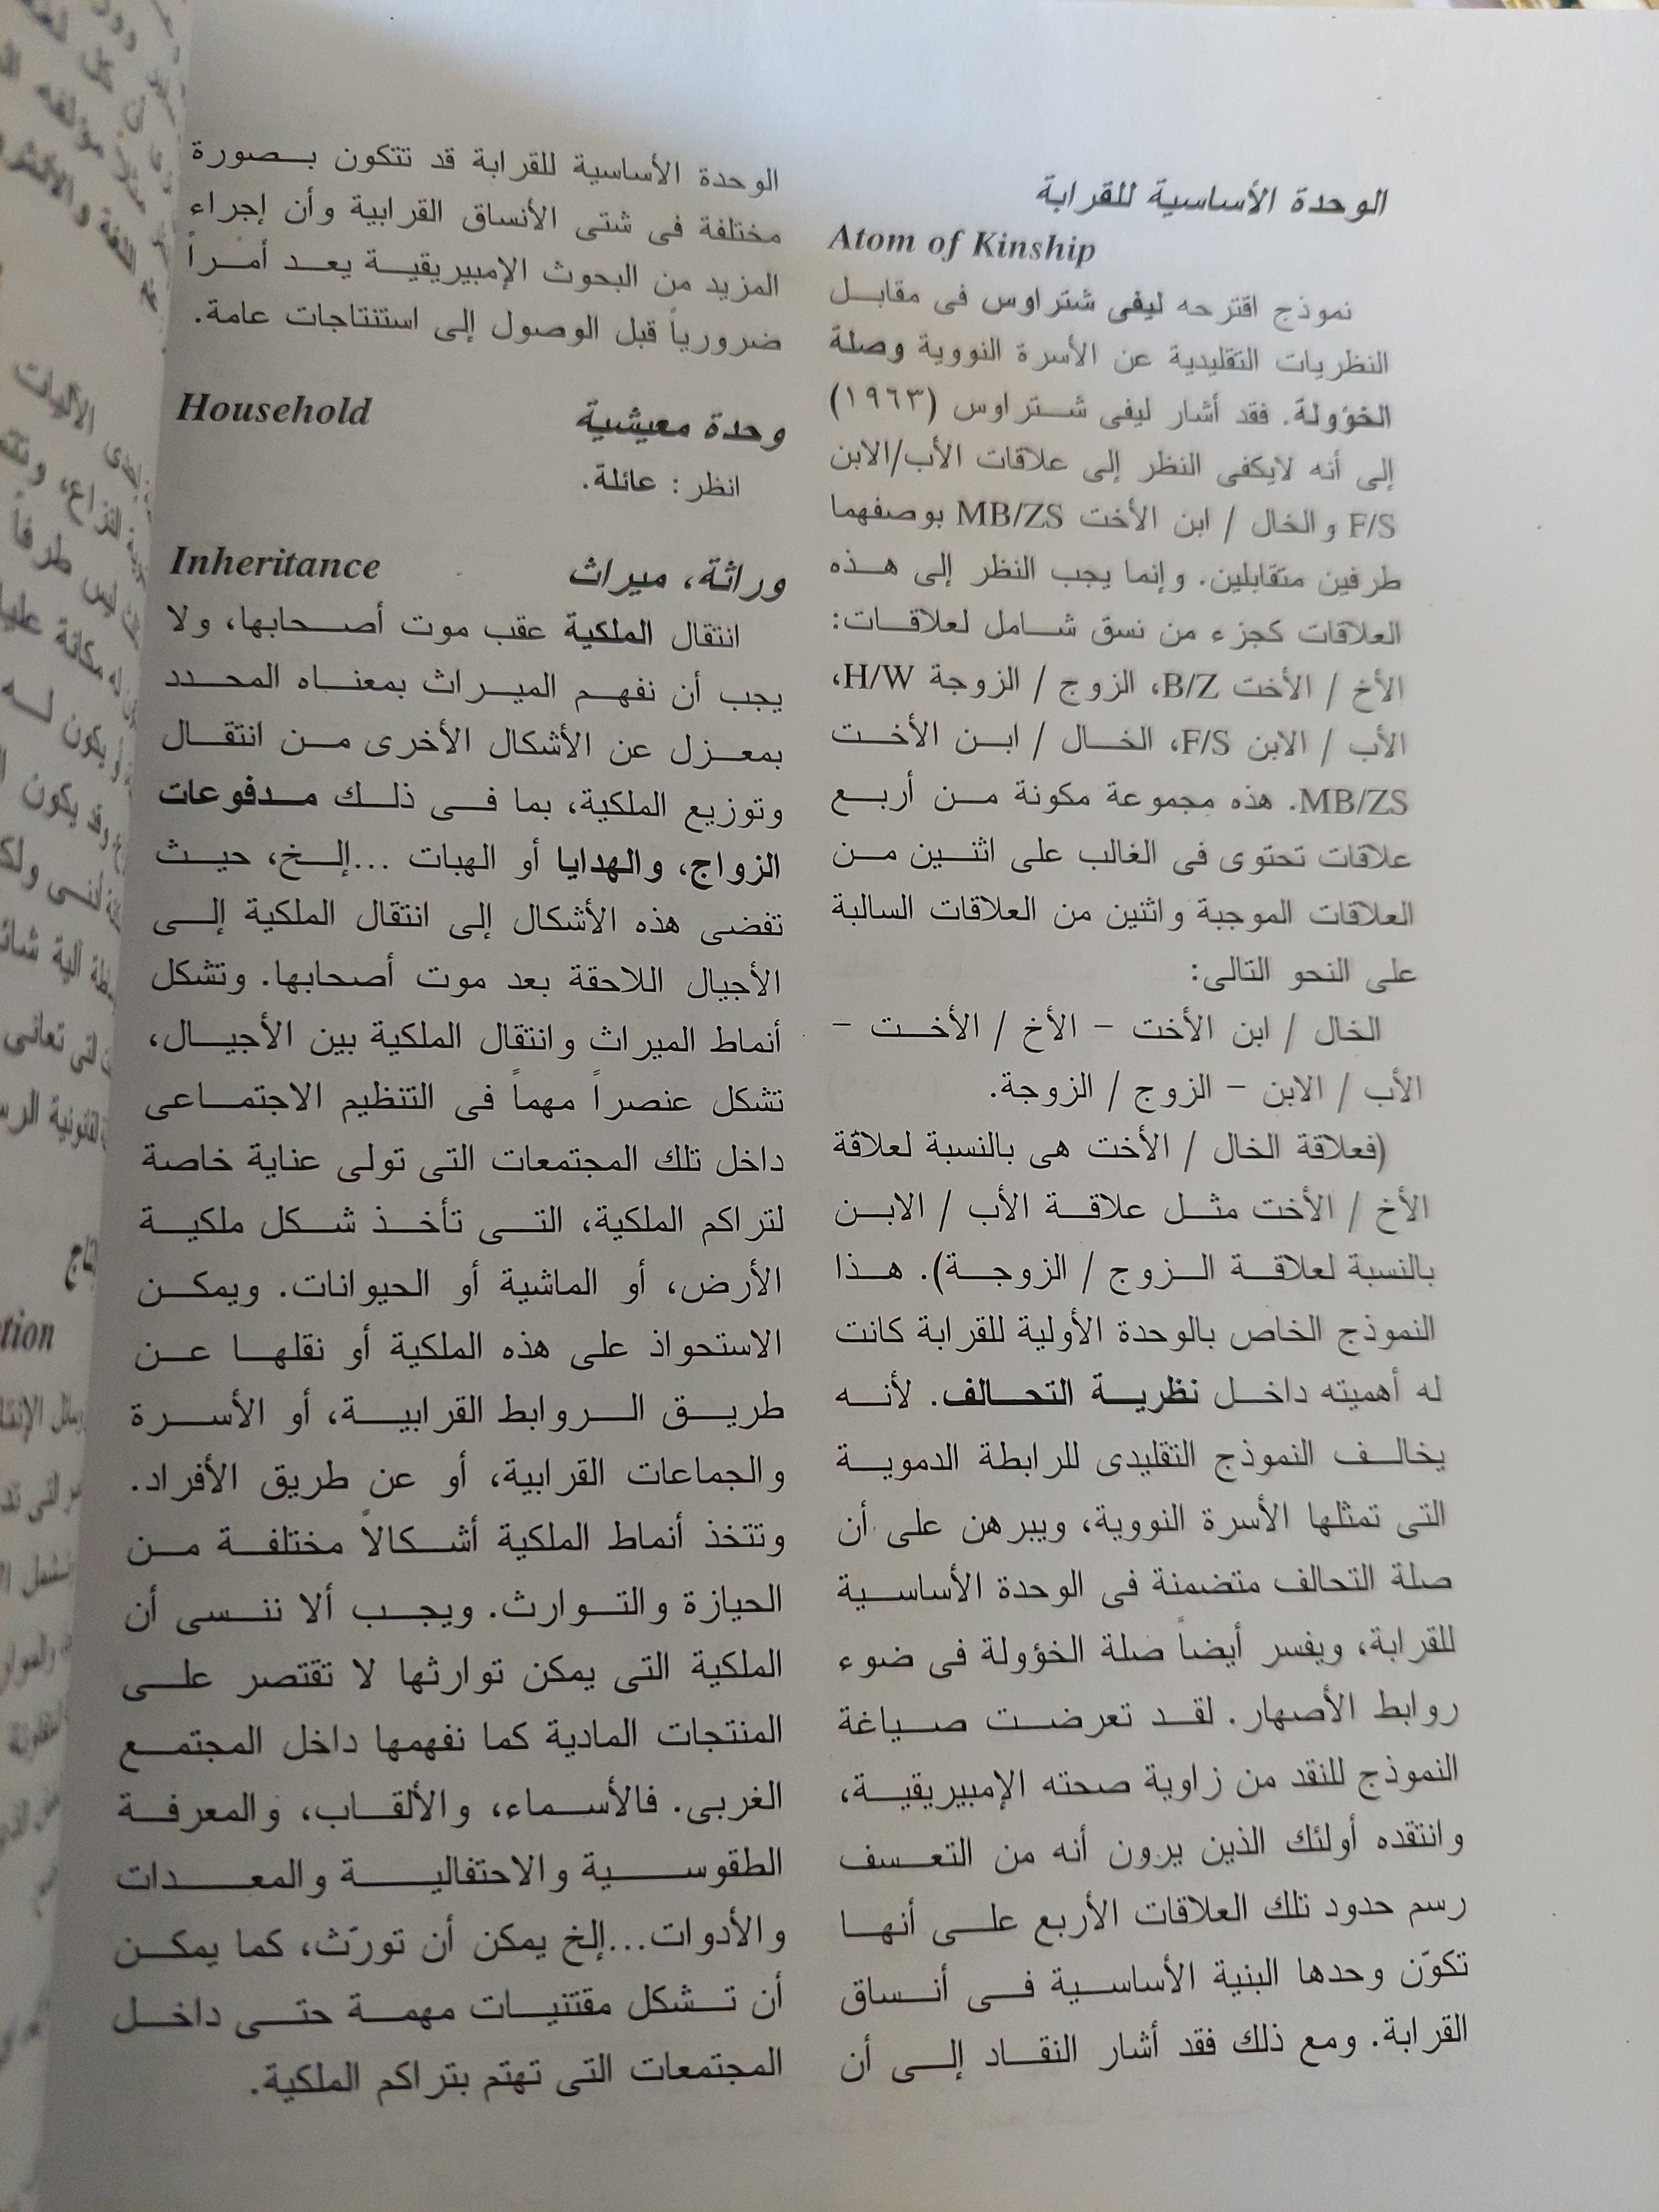 الوحدة الأساسية للقرابة
Atom of Kinship
نموذج اقترحه ليفى شتراوس فى مقابل
النظريات التقليدية عن الأسرة النووية وصلة
الخؤولة. فقد أشار ليفى شتراوس (١٩٦٣)
إلى أنه لايكفى النظر إلى علاقات الأب/الابن
F/S والخال / ابن الأخت MB/ZS بوصفهما
طرفين متقابلين. وإنما يجب النظر إلى هذه
العلاقات كجزء من نسق شامل لعلاقات:
الأخ / الأخت B/Z، الزوج / الزوجة H/W،
الأب / الابن F/S، الخال / ابن الأخت
MB/ZS. هذه مجموعة مكونة من أربع
علاقات تحتوى فى الغالب على اثنين من
العلاقات الموجبة واثنين من العلاقات السالبة
على النحو التالى:
الخال / ابن الأخت – الأخ / الأخت –
الأب / الابن – الزوج / الزوجة.
(فعلاقة الخال / الأخت هى بالنسبة لعلاقة
الأخ / الأخت مثل علاقة الأب / الابن
بالنسبة لعلاقة الزوج / الزوجة). هذا
النموذج الخاص بالوحدة الأولية للقرابة كانت
له أهميته داخل نظرية التحالف. لأنه
يخالف النموذج التقليدى للرابطة الدموية
التى تمثلها الأسرة النووية، ويبرهن على أن
صلة التحالف متضمنة فى الوحدة الأساسية
للقرابة، ويفسر أيضاً صلة الخؤولة فى ضوء
روابط الأصهار. لقد تعرضت صياغة
النموذج للنقد من زاوية صحته الإمبيريقية،
وانتقده أولئك الذين يرون أنه من التعسف
رسم حدود تلك العلاقات الأربع على أنها
تكوّن وحدها البنية الأساسية فى أنساق
القرابة. ومع ذلك فقد أشار النقاد إلى أن
الوحدة الأساسية للقرابة قد تتكون بصورة
مختلفة فى شتى الأنساق القرابية وأن إجراء
المزيد من البحوث الإمبيريقية يعد أمراً
ضرورياً قبل الوصول إلى استنتاجات عامة.
وحدة معيشية Household
انظر: عائلة.
وراثة، ميراث Inheritance
انتقال الملكية عقب موت أصحابها، ولا
يجب أن نفهم الميراث بمعناه المحدد
بمعزل عن الأشكال الأخرى من انتقال
وتوزيع الملكية، بما فى ذلك مدفوعات
الزواج، والهدايا أو الهبات ...إلخ، حيث
تفضى هذه الأشكال إلى انتقال الملكية إلى
الأجيال اللاحقة بعد موت أصحابها. وتشكل
أنماط الميراث وانتقال الملكية بين الأجيال،
تشكل عنصراً مهماً فى التنظيم الاجتماعى
داخل تلك المجتمعات التى تولى عناية خاصة
لتراكم الملكية، التى تأخذ شكل ملكية
الأرض، أو الماشية أو الحيوانات. ويمكن
الاستحواذ على هذه الملكية أو نقلها عن
طريق الروابط القرابية، أو الأسرة
والجماعات القرابية، أو عن طريق الأفراد.
وتتخذ أنماط الملكية أشكالاً مختلفة من
الحيازة والتوارث. ويجب ألا ننسى أن
الملكية التى يمكن توارثها لا تقتصر على
المنتجات المادية كما نفهمها داخل المجتمع
الغربى. فالأسماء، والألقاب، والمعرفة
الطقوسية والاحتفالية والمعدات
والأدوات...إلخ يمكن أن تورّث، كما يمكن
أن تشكل مقتنيات مهمة حتى داخل
المجتمعات التى تهتم بتراكم الملكية.